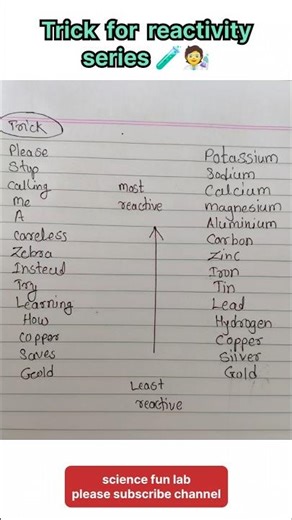 Trick for reactivity
series
Trick
Please
Stop
Calling
Me
A
Careless
Zebra
Instead
Try
Learning
How
Copper
Saves
Geold
most
reactive
Least
reactive
Potassium
Sodium
Calcium
magnesium
Aluminium
Carbon
Zinc
Iron
Tin
Lead
Hydrogen
Copper
Silver
Gold
science fun lab
please subscribe channel